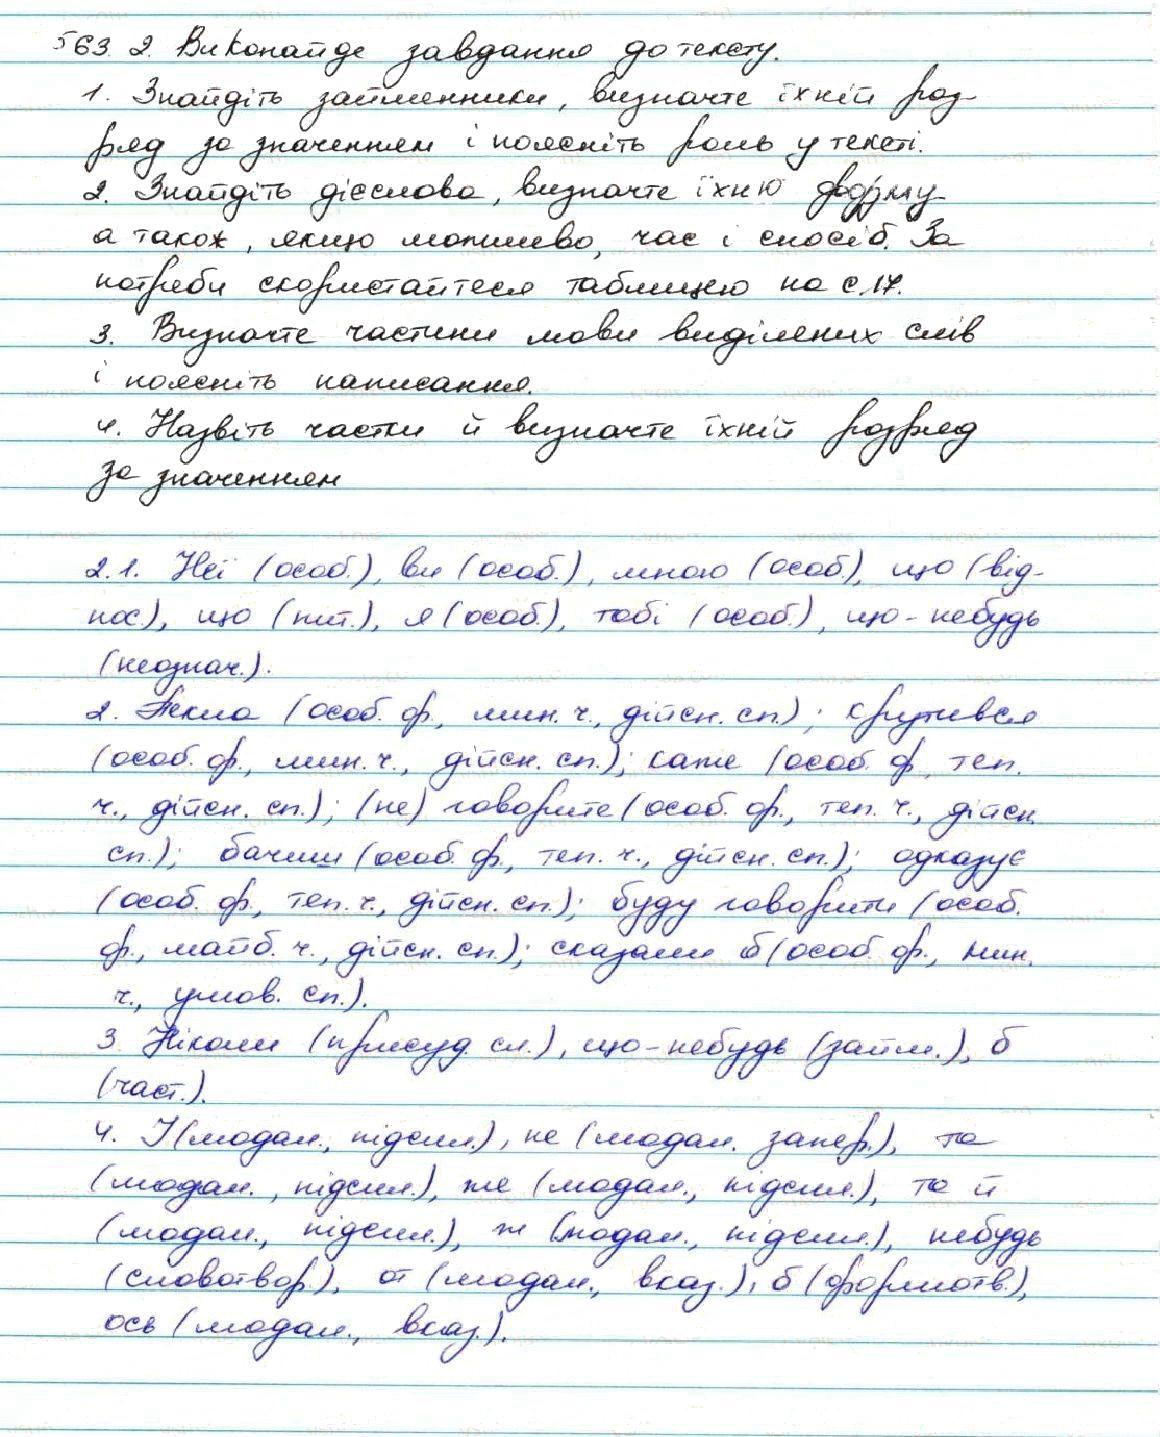 563. 2. Виконайде завдання до тексту.
1. Знайдіть займенники, визначте їхній роз-
ряд за значенням і поясніть роль у тексті.
2. Знайдіть дієслова, визначте їхню форму
а також, якщо можливо, час і спосіб. За
потреби скористайтеся таблицею на с.17.
3. Визначте частини мови виділених слів
і поясніть написання.
4. Назвіть частки й визначте їхній розряд
за значенням
2.1. Неї (особ.), ви (особ.), мною (особ.), що (від-
нос.), що (пит.), я (особ.), тобі (особ.), що-небудь
(неознач.).
2. Жила (особ. ф., мин. ч., дійсн. сп.); крутився
(особ. ф., мин. ч., дійсн. сп.); каже (особ. ф, теп.
ч., дійсн. сп.); (не) говорите (особ. ф., теп. ч., дійсн.
сп.); бачиш (особ. ф., теп. ч., дійсн. сп.); одказує
(особ. ф., теп. ч., дійсн. сп.); буду говорити (особ.
ф., майб. ч., дійсн. сп.); сказали б (особ. ф., мин.
ч., умов. сп.).
3. Ніколи (присуд. сл.), що-небудь (займ.), б
(част.).
4. І (модал., підсил.), не (модал. запер.), та
(модал., підсил.), же (модал., підсил.), та й
(модал., підсил.), ж (модал., підсил.), небудь
(словотвор.), от (модал., вказ.), б (формотв.),
ось (модал., вказ.).